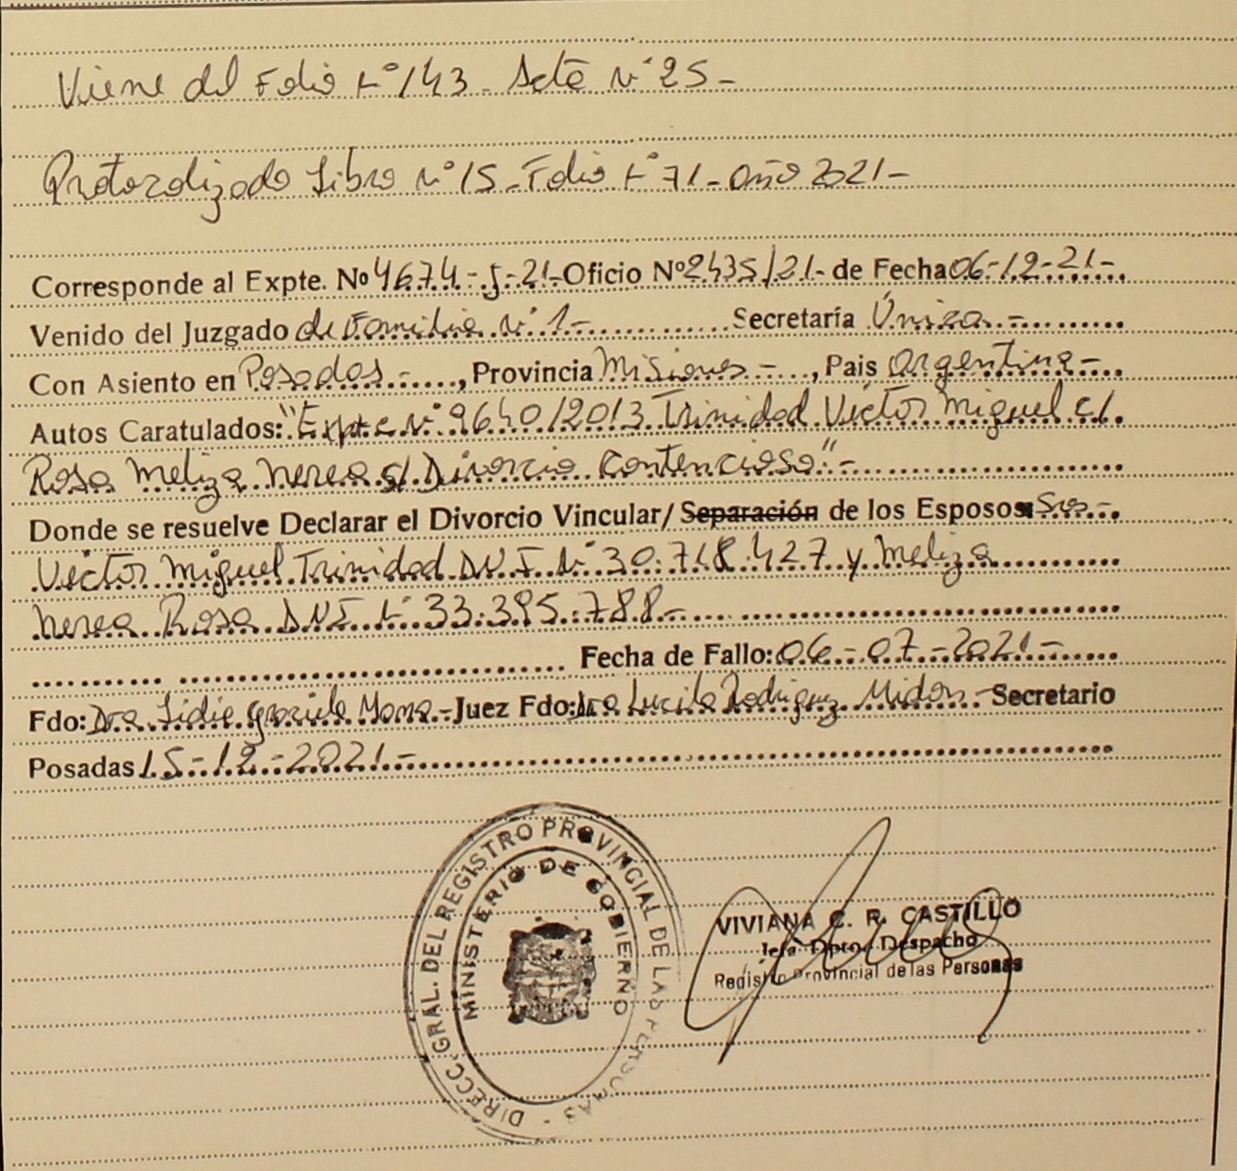 Viene del Folio Nº 143 - Acta Nº 25 -
Protocolizado Libro Nº 15 - Folio Nº 71 - Año 2021 -
Corresponde al Expte. Nº 4674-J-21- Oficio Nº 2435/21- de Fecha 06-12-21-
Venido del Juzgado de Familia Nº 1- Secretaría Única -
Con Asiento en Posadas -, Provincia Misiones -, Pais Argentina -
Autos Caratulados: "Expte Nº 9640/2013 Trinidad Victor Miguel c/.
Rosa Meliza Nerea s/ Divorcio Contencioso" -
Donde se resuelve Declarar el Divorcio Vincular/ Separación de los Esposos Sres -
Victor Miguel Trinidad DNI Nº 30.718.427 y Meliza
Nerea Rosa DNI Nº 33.395.788 -
Fecha de Fallo: 06-07-2021-
Fdo: Dra Lidia Graciela Mana - Juez Fdo: Dra Lucila Rodriguez Midon - Secretario
Posadas 15-12-2021 -
DIRECC. GRAL. DEL REGISTRO PROVINCIAL DE LAS PERSONAS -
MINISTERIO DE GOBIERNO
VIVIANA C. R. CASTILLO
Jefa Dpto. Despacho
Registro Provincial de las Personas